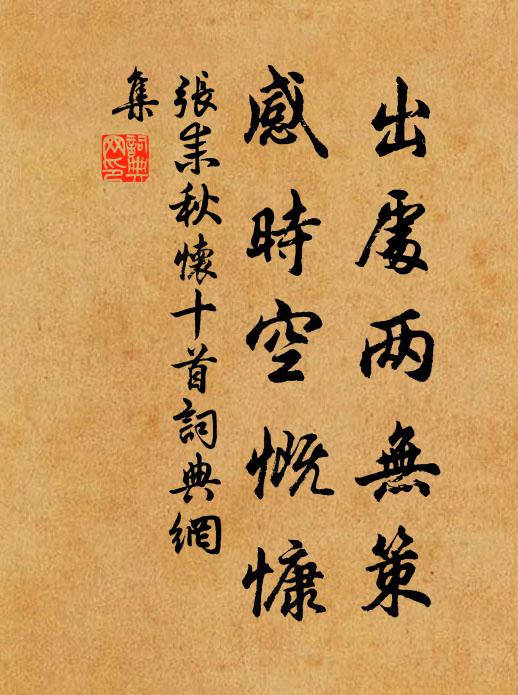 出處兩無策
感時空慨慷
張耒秋懷十首詞典網
集
詞典
网印